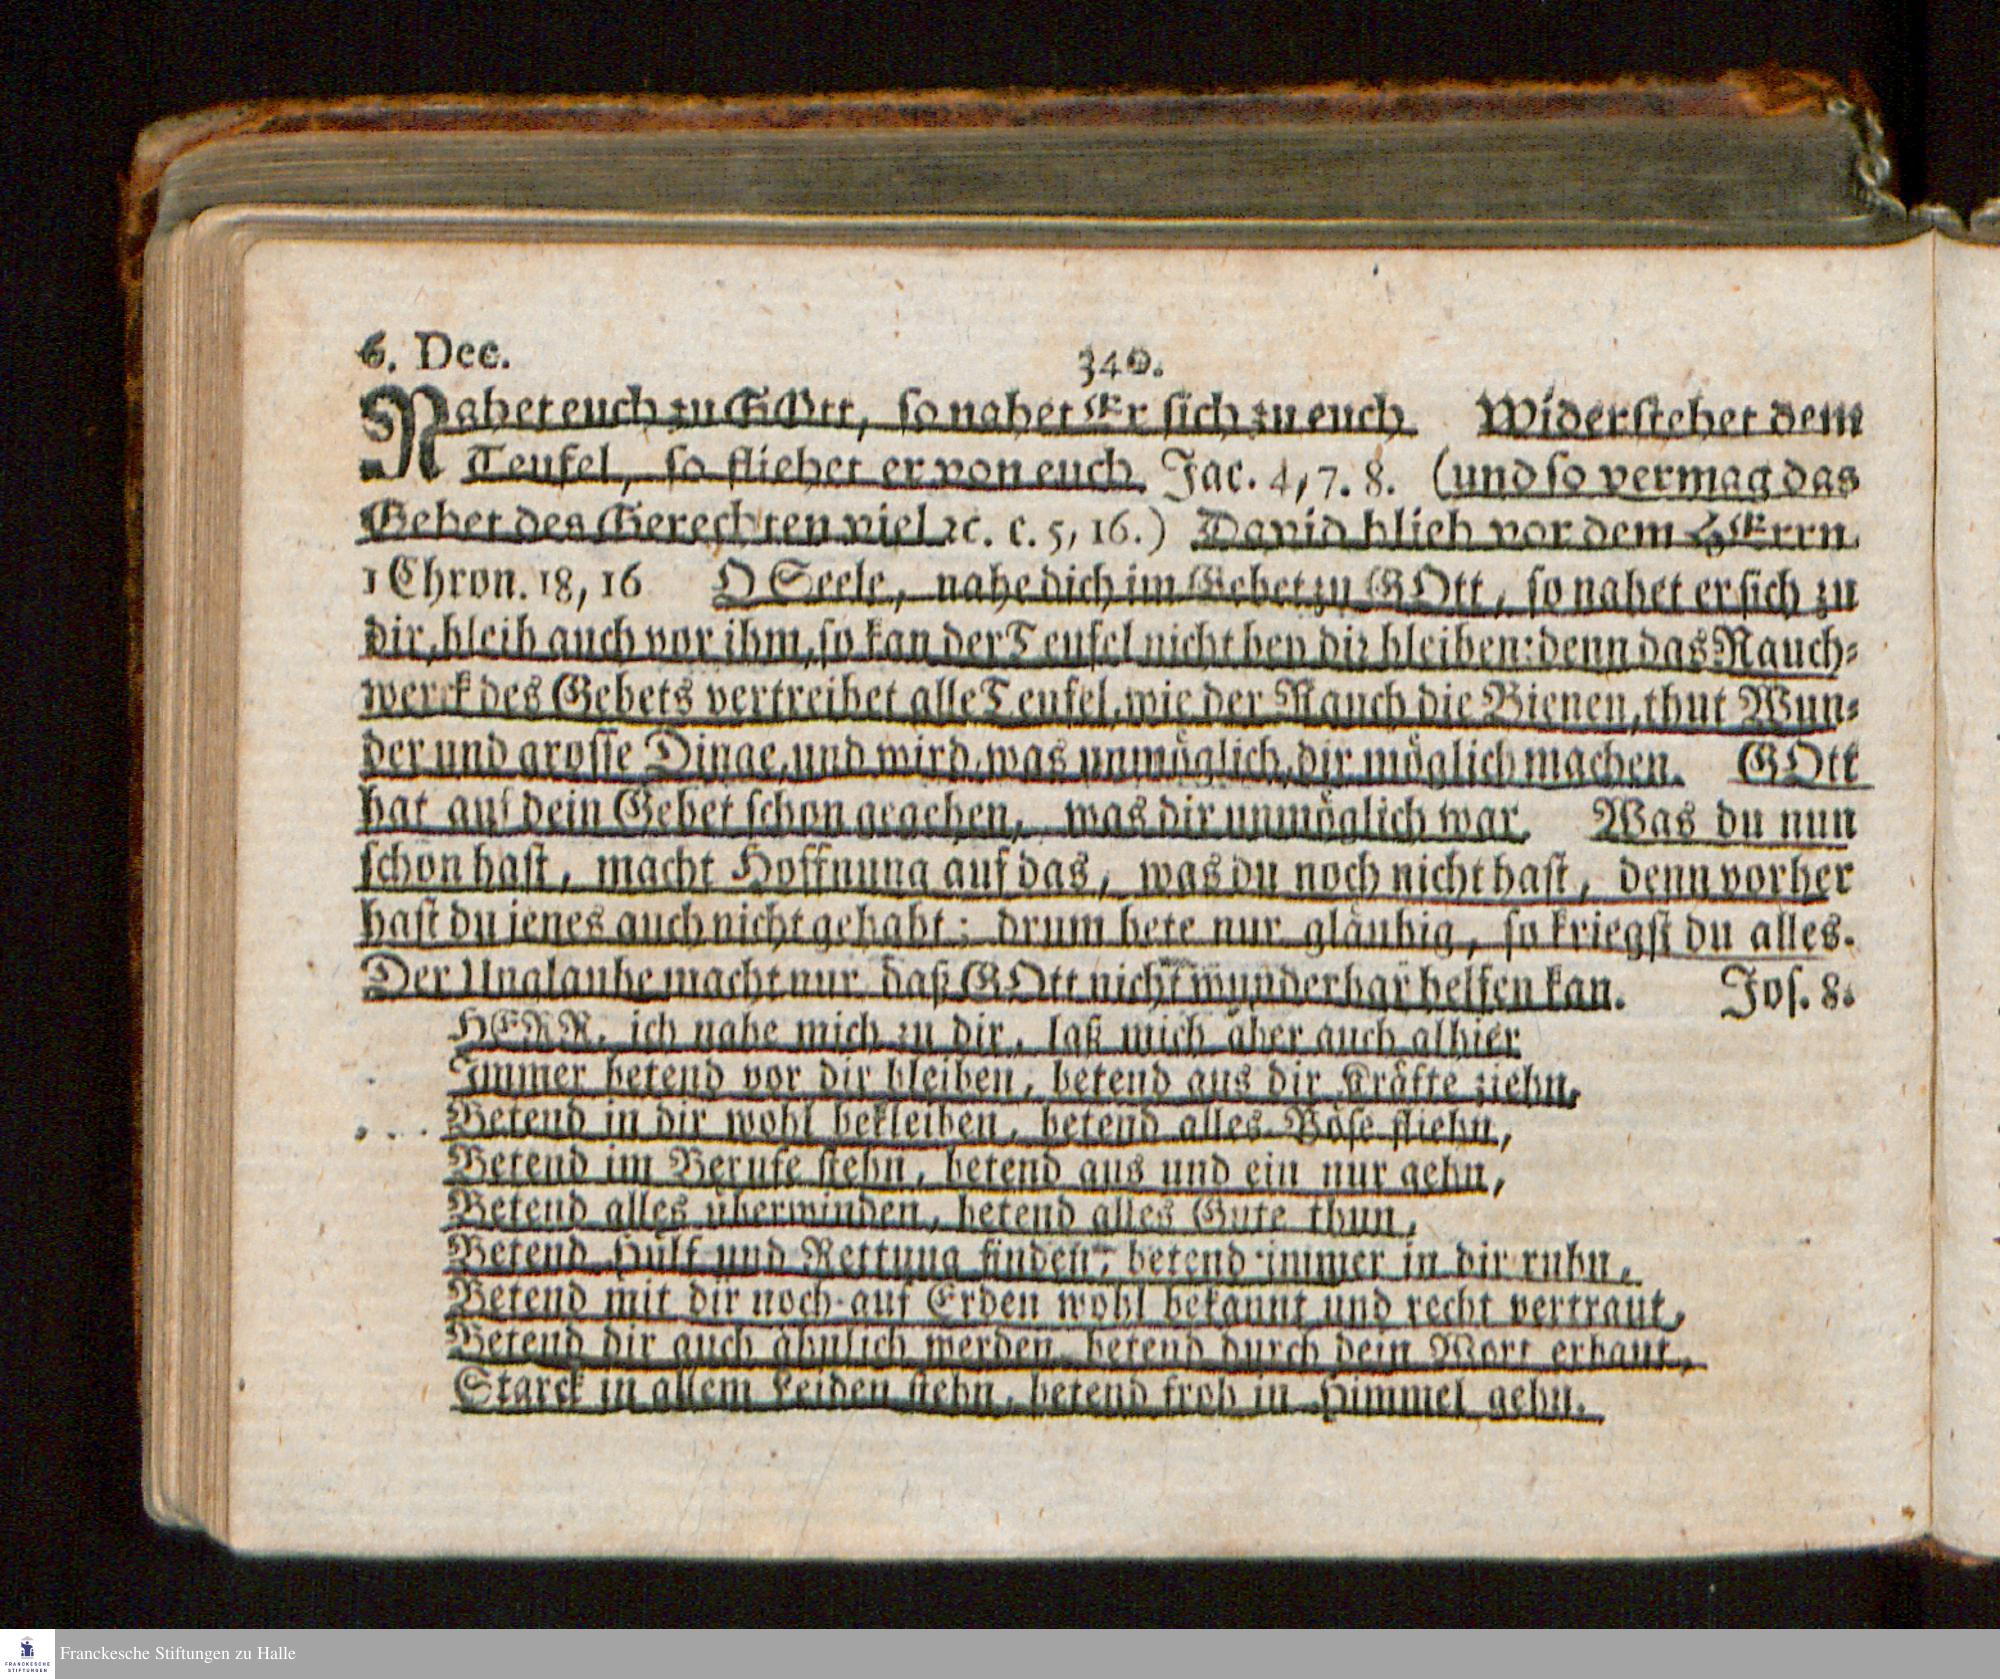 6. Dec.
340.
Nahet euch zu GOtt, so nahet Er sich zu euch. Widerstehet dem
Teufel, so fliehet er von euch. Jac. 4, 7. 8. (und so vermag das
Gebet des Gerechten viel ꝛc. c. 5, 16.) David blieb vor dem HErrn.
1 Chron. 18, 16 O Seele, nahe dich im Gebet zu GOtt, so nahet er sich zu
dir, bleib auch vor ihm, so kan der Teufel nicht bey dir bleiben: denn das Rauch-
werck des Gebets vertreibet alle Teufel, wie der Rauch die Bienen, thut Wun-
der und grosse Dinge, und wird, was unmöglich, dir möglich machen. GOtt
hat auf dein Gebet schon gegeben, was dir unmöglich war. Was du nun
schon hast, macht Hoffnung auf das, was du noch nicht hast, denn vorher
hast du jenes auch nicht gehabt; drum bete nur gläubig, so kriegst du alles.
Der Unglaube macht nur, daß GOtt nicht wunderbar helfen kan. Jos. 8.
HERR, ich nahe mich zu dir, laß mich aber auch alhier
Immer betend vor dir bleiben, betend aus dir Kräfte ziehn,
Betend in dir wohl bekleiben, betend alles Böse fliehn,
Betend im Berufe stehn, betend aus und ein nur gehn,
Betend alles überwinden, betend alles Gute thun,
Betend Hülf und Rettung finden, betend immer in dir ruhn,
Betend mit dir noch auf Erden wohl bekannt und recht vertraut,
Betend dir auch ähnlich werden, betend durch dein Wort erbaut,
Starck in allem Leiden stehn, betend froh in Himmel gehn.
FRANCKESCHE
STIFTUNGEN
Franckesche Stiftungen zu Halle